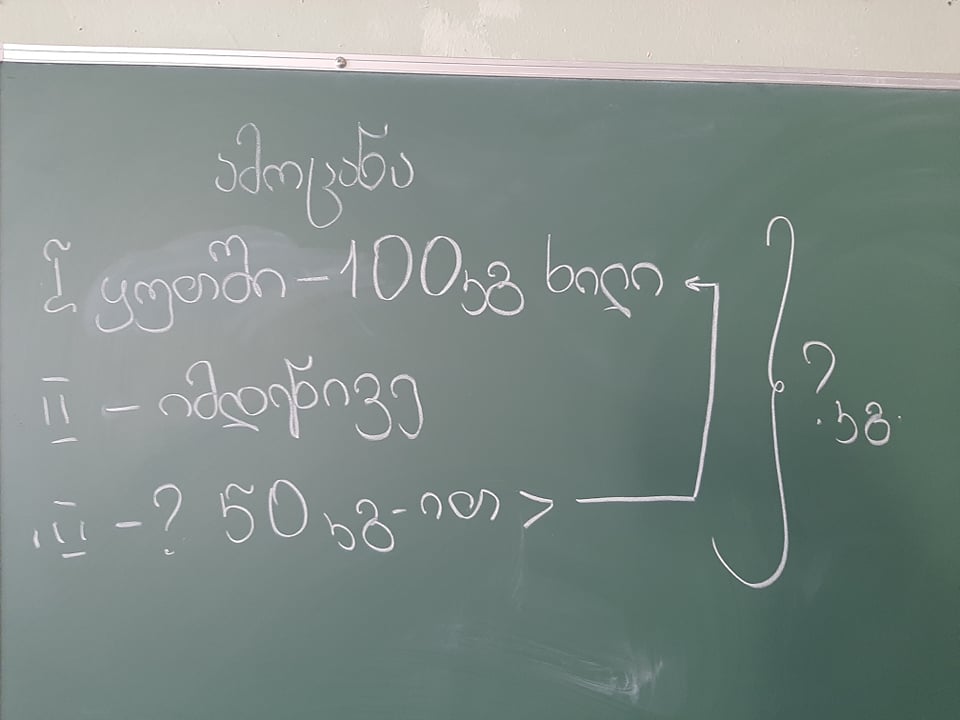 ამოცანა
I ყუთში – 100 კგ ხილი
II – იმდენივე
III – ? 50 კგ-ით >
? კგ.